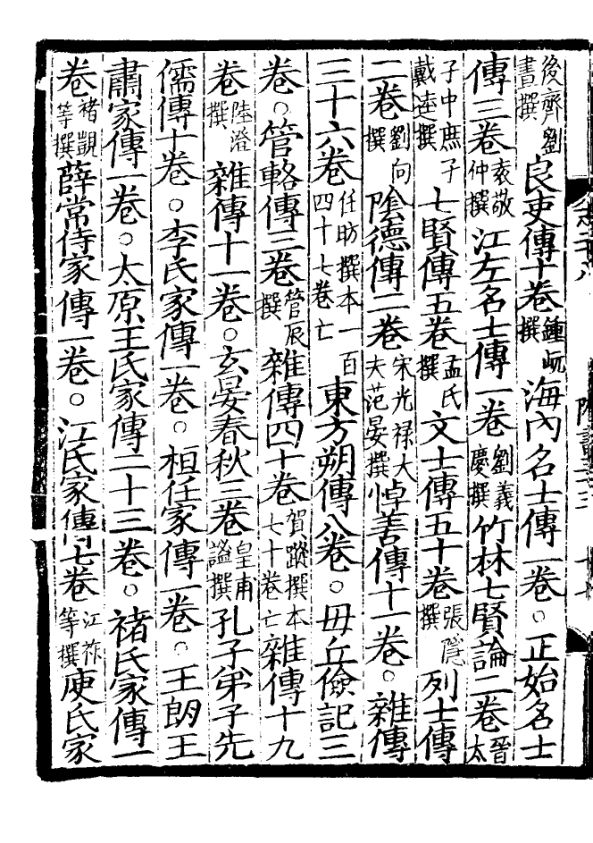 後齊劉晝撰良吏傳十卷鍾岏撰海內名士傳一卷○正始名士
傳三卷袁敬仲撰江左名士傳一卷劉義慶撰竹林七賢論二卷晉太
子中庶子戴逵撰七賢傳五卷孟氏撰文士傳五十卷張隱撰列士傳
二卷劉向撰陰德傳二卷宋光祿大夫范晏撰悼善傳十一卷○雜傳
三十六卷任昉撰本一百四十七卷亡東方朔傳八卷○毋丘儉記三
卷○管輅傳三卷管辰撰雜傳四十卷賀蹤撰本七十卷亡雜傳十九
卷陸澄撰雜傳十一卷○玄晏春秋三卷皇甫謐撰孔子弟子先
儒傳十卷○李氏家傳一卷○桓任家傳一卷○王朗王
肅家傳一卷○太原王氏家傳二十三卷○褚氏家傳一
卷褚覬等撰薛常侍家傳一卷○江氏家傳七卷江祚等撰庾氏家